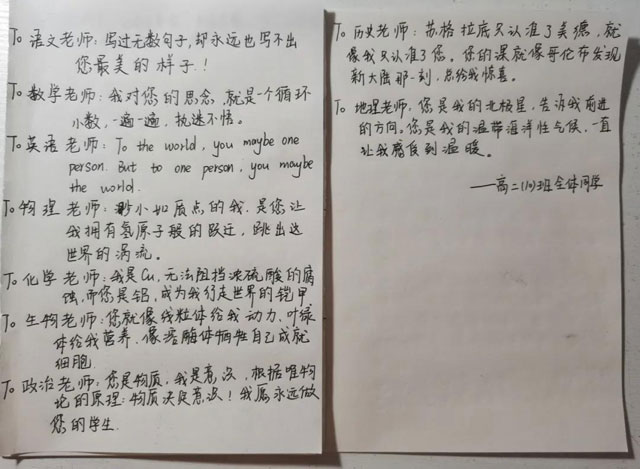 To 语文老师：写过无数句子,却永远也写不出
您最美的样子！
To 数学老师：我对您的思念,就是一个循环
小数,一遍一遍,执迷不悟。
To 英语老师：To the world, you maybe one
person. But to one person, you maybe
the world.
To 物理老师：渺小如质点的我,是您让
我拥有氢原子般的跃迁,跳出这
世界的涡流。
To 化学老师：我是Cu,无法阻挡浓硫酸的腐
蚀,而您是铝,成为我行走世界的铠甲
To 生物老师：您就像线粒体给我动力,叶绿
体给我营养,像溶酶体牺牲自己成就
细胞.
To 政治老师：您是物质,我是意识,根据唯物
论的原理：物质决定意识！我愿永远做
您的学生.
To 历史老师：苏格拉底只认准了美德,就
像我只认准了您。您的课就像哥伦布发现
新大陆那一刻,总给我惊喜。
To 地理老师,您是我的北极星,告诉我前进
的方向。您是我的温带海洋性气候,一直
让我感食到温暖。
——高二(10)班全体同学